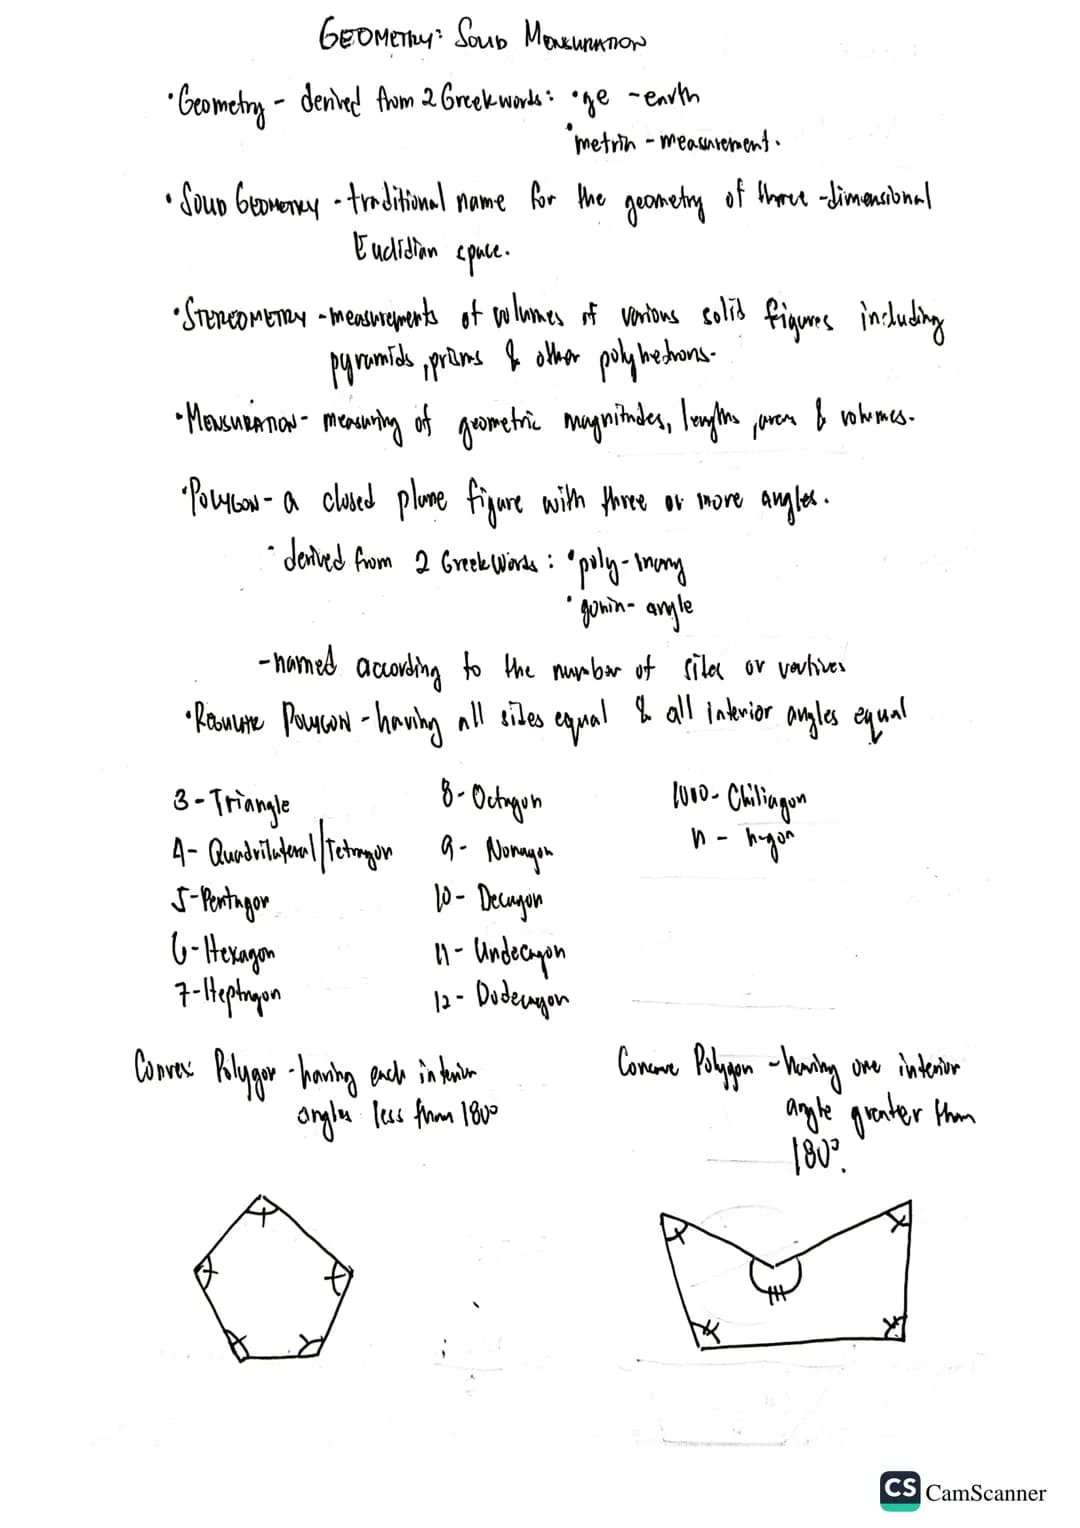 GEOMETRY: SOLID MENSURATION
•Geometry - derived from 2 Greek words: •ge - earth
•metrin - measurement.
•SOLID GEOMETRY - traditional name for the geometry of three-dimensional
Euclidian space.
•STEREOMETRY - measurements of volumes of various solid figures including
pyramids, prisms & other polyhedrons.
•MENSURATION - measuring of geometric magnitudes, lengths, areas & volumes.
•POLYGON - a closed plane figure with three or more angles.
•derived from 2 Greek Words: •poly - many
•gonin - angle
-named according to the number of sides or vertives
•REGULAR POLYGON - having all sides equal & all interior angles equal
3 - Triangle
4 - Quadrilateral/Tetragon
5 - Pentagon
6 - Hexagon
7 - Heptagon
8 - Octagon
9 - Nonagon
10 - Decagon
11 - Undecagon
12 - Dodecagon
1000 - Chiliagon
n - n-gon
Convex Polygon - having each interior
angles less than 180°
Concave Polygon - having one interior
angle greater than
180°.
CS CamScanner